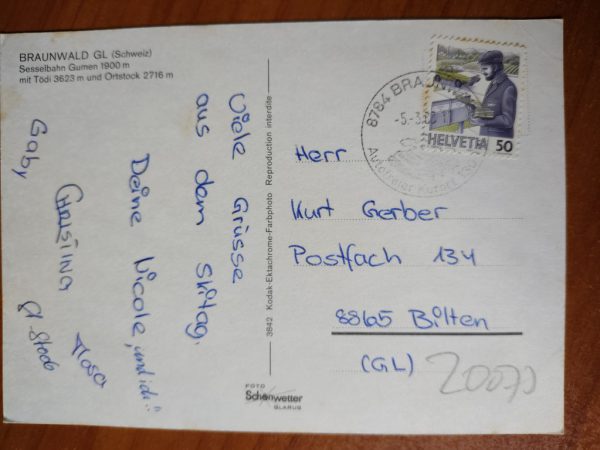 BRAUNWALD GL (Schweiz)
Sesselbahn Gumen 1900 m
mit Tödi 3623 m und Ortstock 2716 m
Viele Grüsse
aus dem Skitag.
Deine Nicole, und ich"
Christina
Gaby
3842 Kodak-Ektachrome-Farbphoto Reproduction interdite
8784 BRAUNW
-5.-3.
Autofreier
HELVETIA 50
Herr
Kurt Gerber
Postfach 134
8865 Bilten
(GL)
FOTO
Schönwetter
GLARUS